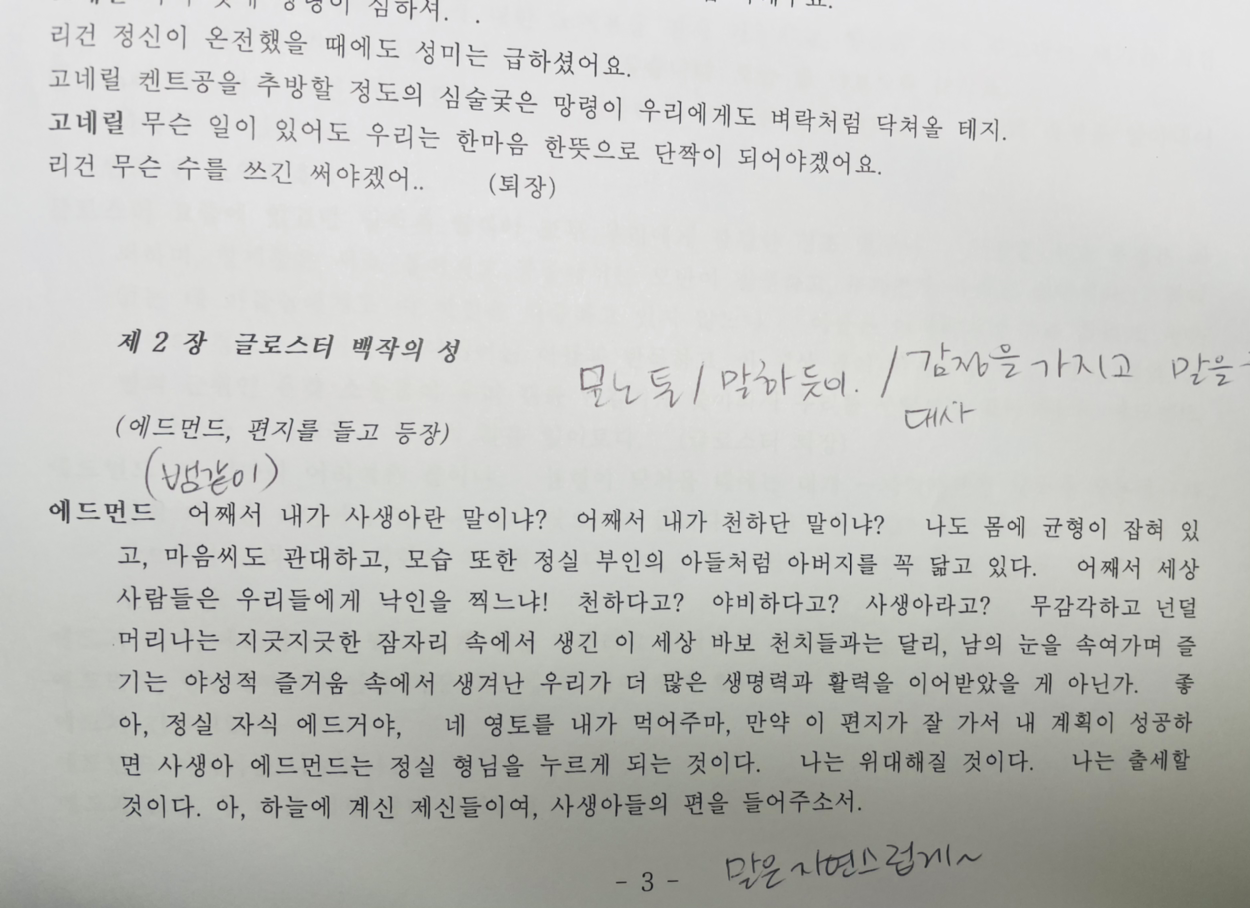 심하셔. .
리건 정신이 온전했을 때에도 성미는 급하셨어요.
고네릴 켄트공을 추방할 정도의 심술궂은 망령이 우리에게도 벼락처럼 닥쳐올 테지.
고네릴 무슨 일이 있어도 우리는 한마음 한뜻으로 단짝이 되어야겠어요.
리건 무슨 수를 쓰긴 써야겠어.. (퇴장)
제 2 장 글로스터 백작의 성
/ 말하듯이. / 감정을 가지고 말을
대사
(에드먼드, 편지를 들고 등장)
(뱀같이)
에드먼드 어째서 내가 사생아란 말이냐? 어째서 내가 천하단 말이냐? 나도 몸에 균형이 잡혀 있
고, 마음씨도 관대하고, 모습 또한 정실 부인의 아들처럼 아버지를 꼭 닮고 있다. 어째서 세상
사람들은 우리들에게 낙인을 찍느냐! 천하다고? 야비하다고? 사생아라고? 무감각하고 넌덜
머리나는 지긋지긋한 잠자리 속에서 생긴 이 세상 바보 천치들과는 달리, 남의 눈을 속여가며 즐
기는 야성적 즐거움 속에서 생겨난 우리가 더 많은 생명력과 활력을 이어받았을 게 아닌가. 좋
아, 정실 자식 에드거야, 네 영토를 내가 먹어주마, 만약 이 편지가 잘 가서 내 계획이 성공하
면 사생아 에드먼드는 정실 형님을 누르게 되는 것이다. 나는 위대해질 것이다. 나는 출세할
것이다. 아, 하늘에 계신 제신들이여, 사생아들의 편을 들어주소서.
- 3 - 말은 자연스럽게~